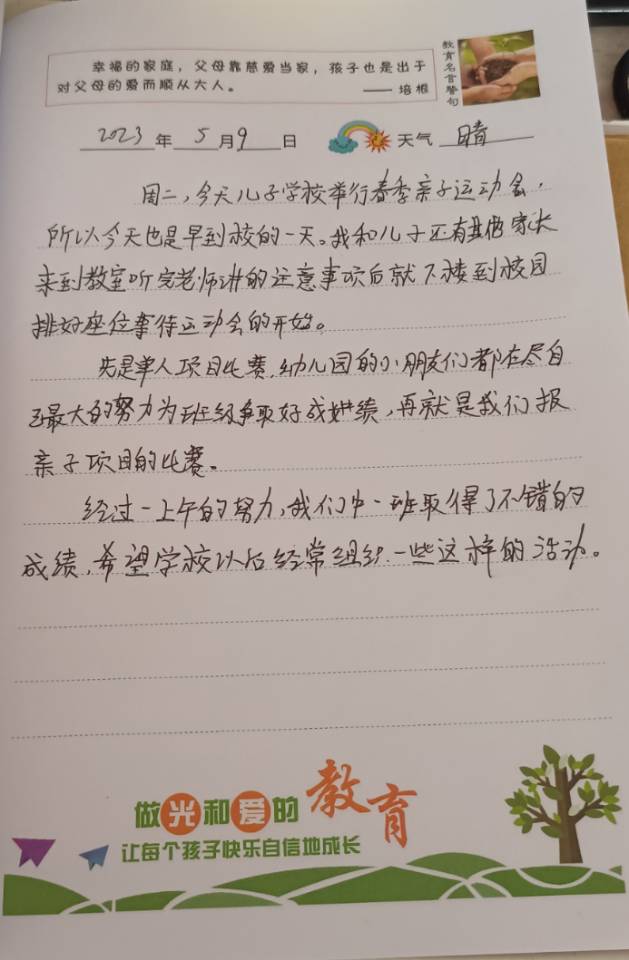 幸福的家庭，父母靠慈爱当家，孩子也是出于
对父母的爱而顺从大人。
——培根
教育名言警句
2023年5月9日 天气 晴
周二，今天儿子学校举行春季亲子运动会，
所以今天也是早到校的一天。我和儿子还有其他家长
来到教室听完老师讲的注意事项后就下楼到校园
排好座位等待运动会的开始。
先是单人项目比赛，幼儿园的小朋友们都在尽自
己最大的努力为班级争取好成绩，再就是我们报
亲子项目的比赛。
经过一上午的努力，我们中一班取得了不错的
成绩，希望学校以后经常组织一些这样的活动。
做光和爱的教育
让每个孩子快乐自信地成长